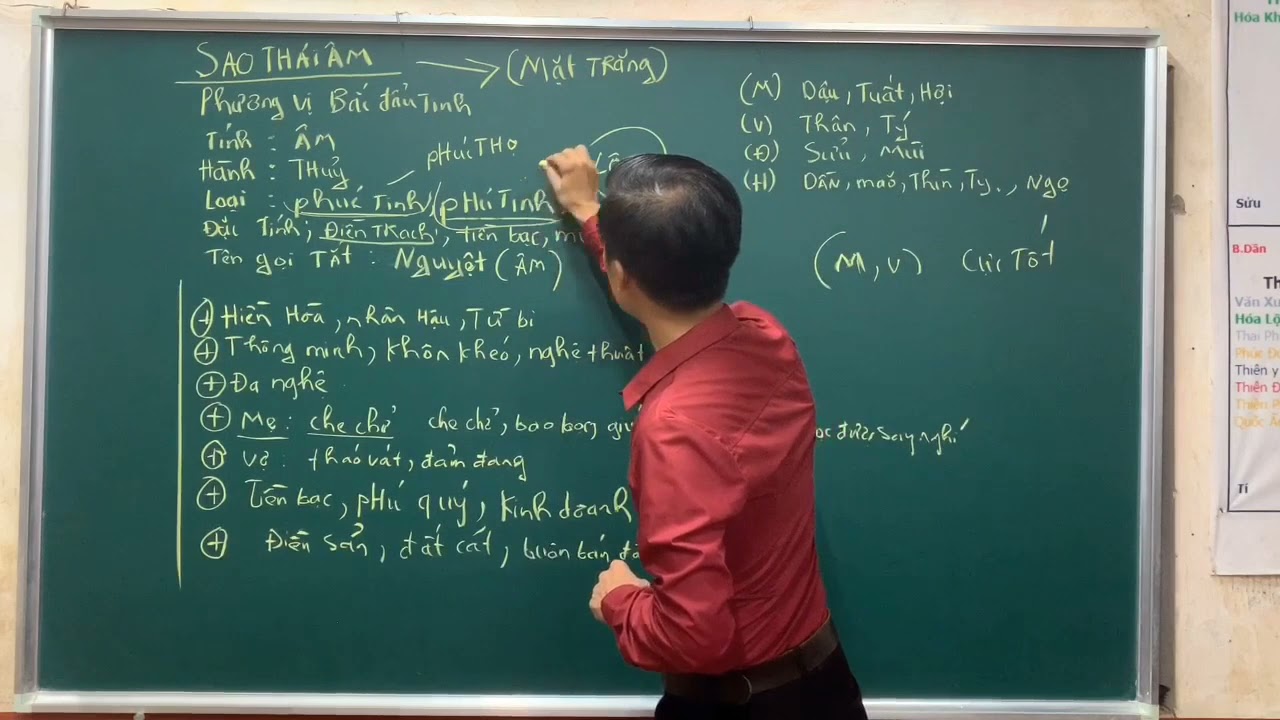 SAO THÁI ÂM → (Mặt Trăng)
Phương vị Bắc đẩu Tinh
Tính : ÂM
Hành : THủy
phúc THọ
Loại : phúc Tinh / pHú Tinh
Đặc Tính : Điền Trạch, tiền bạc,
Tên gọi Tắt : Nguyệt (ÂM)
(M) Dậu, Tuất, Hợi
(V) Thân, Tý
(Đ) Sửu, Mùi
(H) Dần, mão, Thìn, Tỵ., Ngọ
(M, V) Cực Tốt
+ Hiền Hòa, nhân Hậu, Từ bi
+ Thông minh, khôn khéo, nghệ thuật
+ Đa nghệ
+ Mẹ : che chở che chở, bao bọng được suy nghĩ
+ Vợ : tháo vát, đảm đang
+ Tiền bạc, pHú quý, kinh doanh
+ Điền sản, đất cát, buôn bán
Hóa
Sửu
B.Dần
Th
Văn Xư
Hóa Lộ
Thai Ph
Phúc Đ
Thiên y
Thiên Đ
Thiên P
Quốc Ấ
Tí